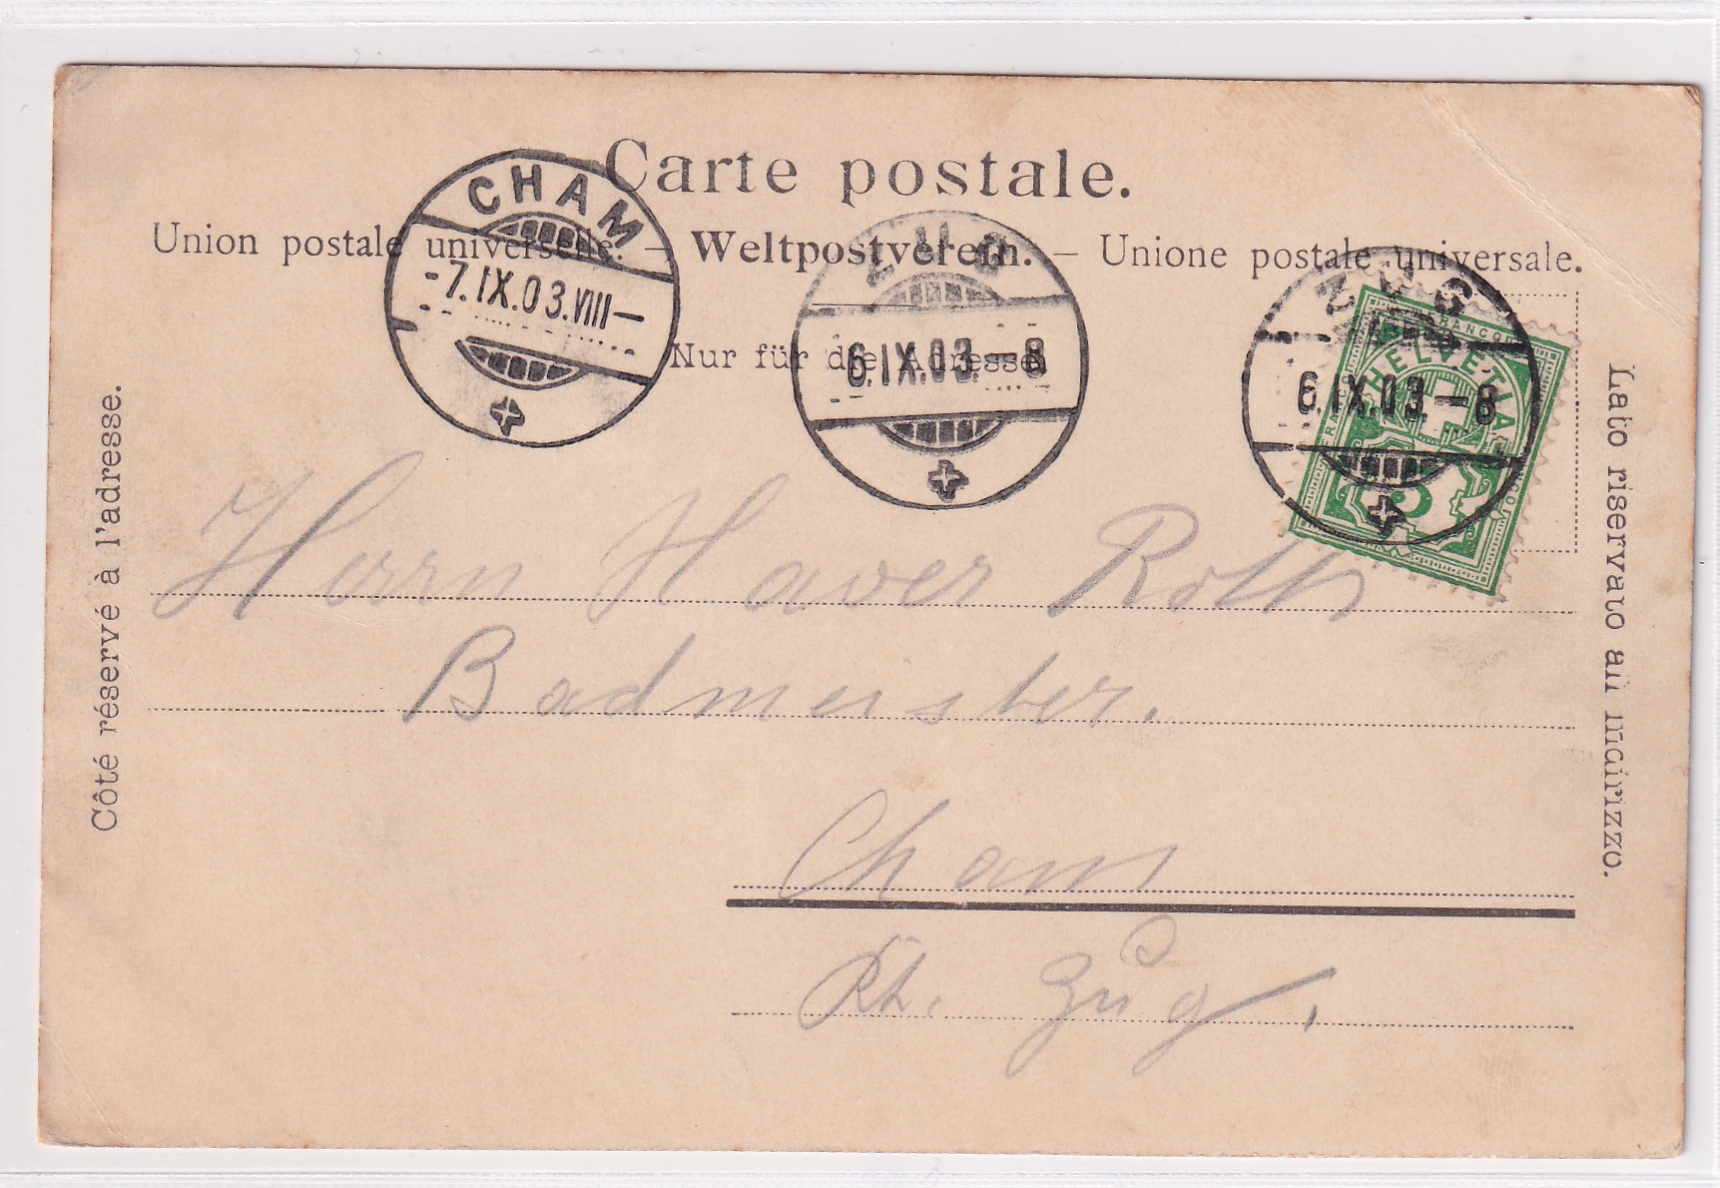 Carte postale.
Union postale universelle. — Weltpostverein. — Unione postale universale.
Nur für die Adresse.
Côté réservé à l'adresse.
Lato riservato all' indirizzo.
CHAM
-7.IX.03.VIII—
ZUG
6.IX.03.—8
ZUG
6.IX.03.—8
FRANCO
HELVETIA
5
Herrn Xaver Roth
Badmeister.
Cham
Kt. Zug.